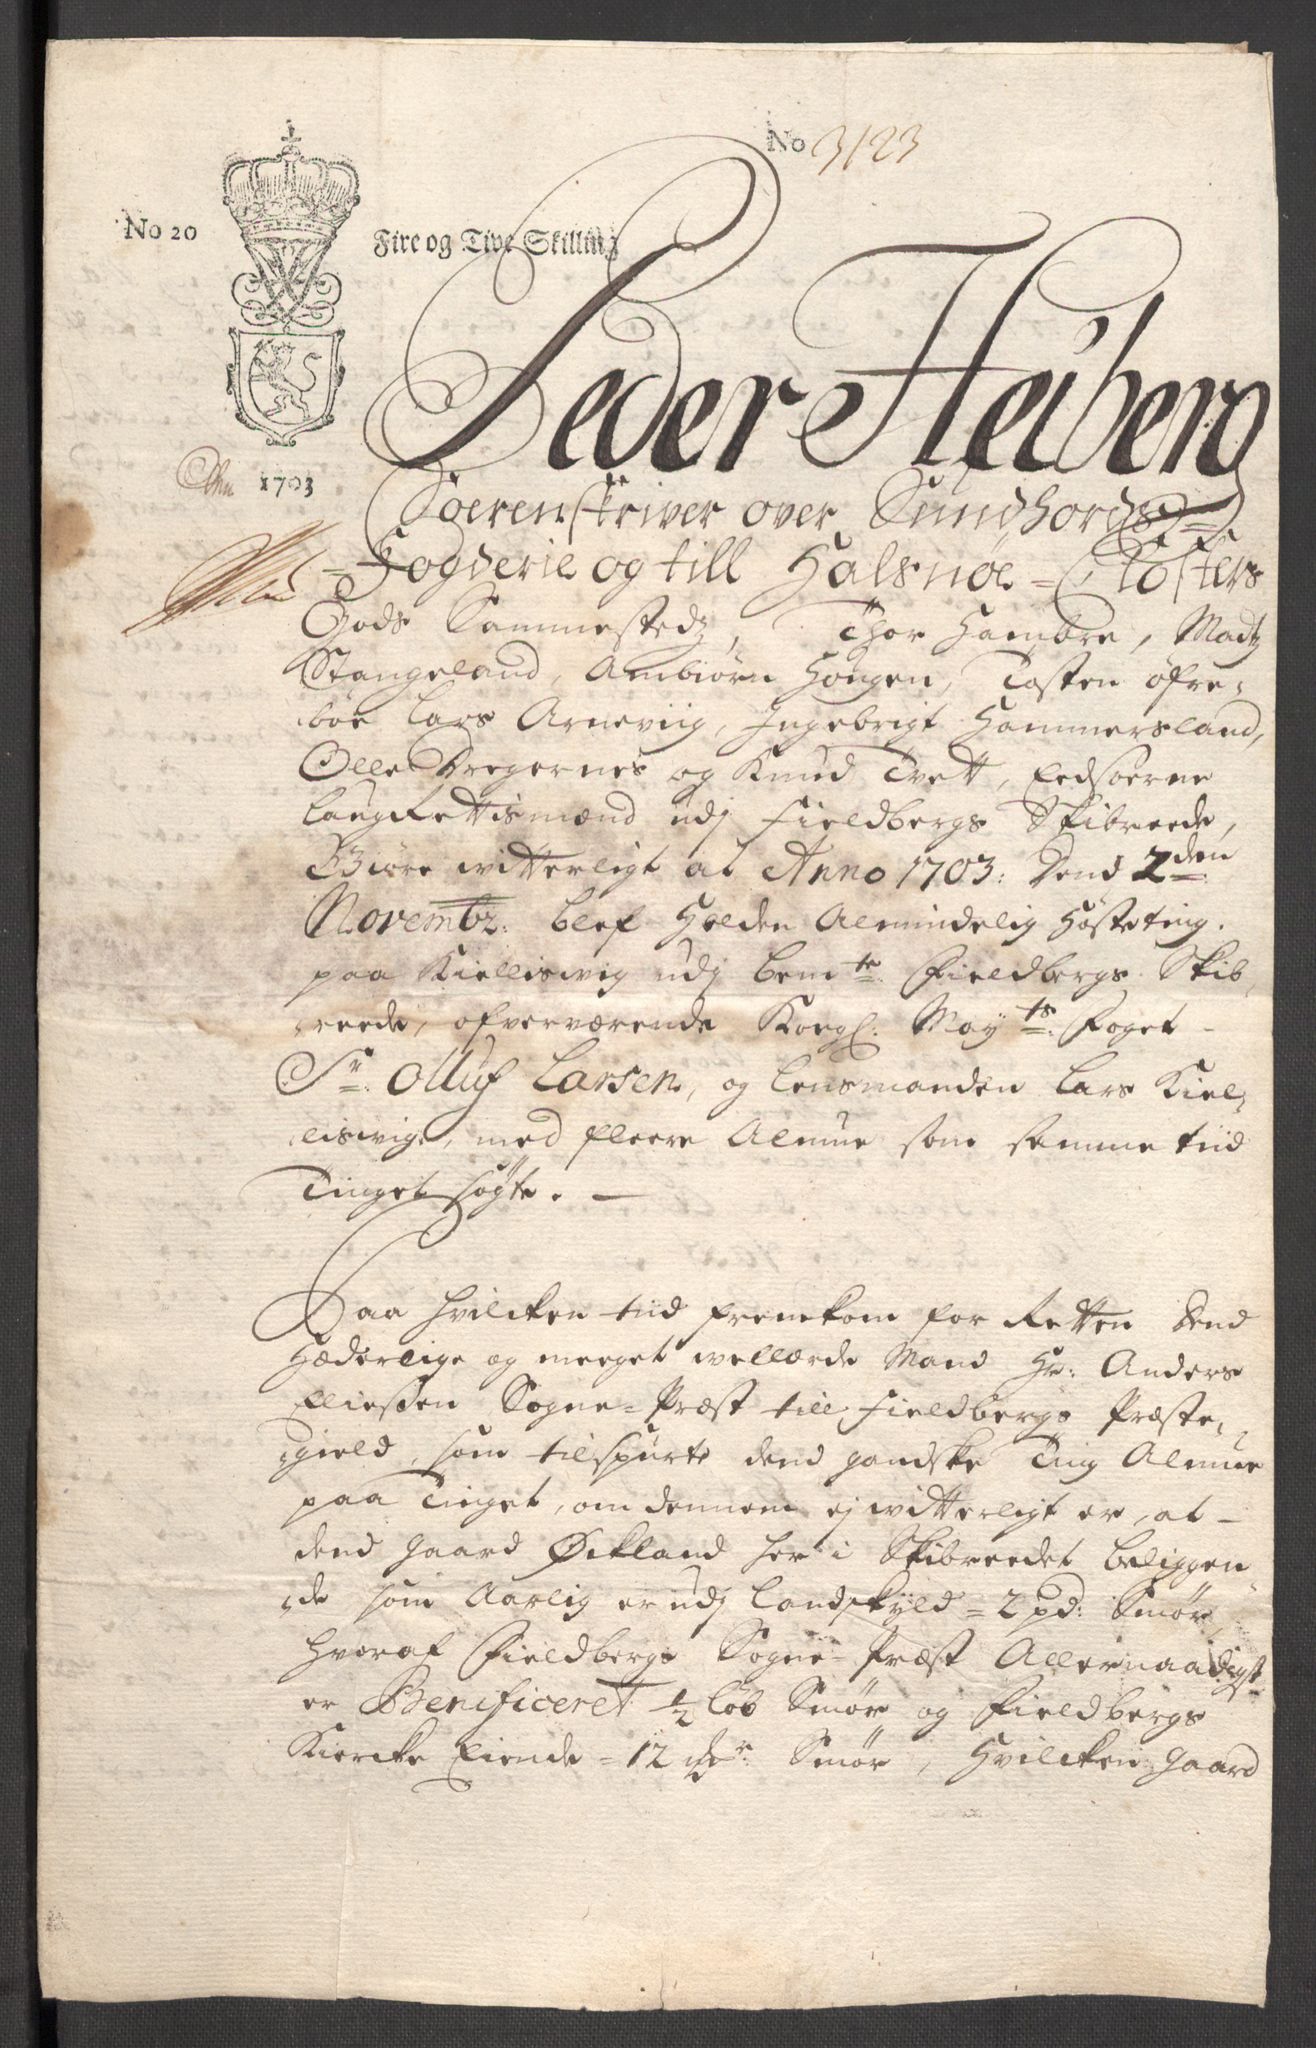 No 3123
No 20
Fire og Tive Skilling
Peder Heiberg
1703
Soerenskriver over Sundhords
Fogderie og till Halsnøe Closters
Gods Sammestedz, Thor Hambre, Madtz
Stangeland, Ambiørn Hougen, Tosten Øfre,
bøe Lars Arneviig, Ingebrigt Hammersland,
Olle Dregernes og Knud Tvett, Eedsoerne
Laugrettismænd udj Fieldbergs Skibreede,
Giøre witterligt at Anno 1703: Dend 2den
Novembr: blef Holden Almindelig Høsteting
paa Kielliswig udj bemte Fieldbergs Skib,
reede, ofverværende Kongl: Mayts: Foget
Sr: Olluf Larsen, og Lensmanden Lars Kiel,
liswig, med fleere Almue som samme tiid
Tinget søgte. —
Paa hvilcken tiid fremkom for Retten Dend
Hæderlige og meeget wellærde Mand Hr: Anders
Eliesen Sogne-Præst till Fieldbergs Præste,
gield, som tilspurte dend gandske Ting Almue
paa Tinget, om dennem ej witterligt er, at
dend gaard Øckland her i Skibreedet beliggen
de som Aarlig er udj Landskyld - 2 pd: Smør,
hvoraf Fieldbergs Sogne-Præst Allernaadigst
er Benificeret ½ Løb Smør og Fieldbergs
Kiercke Eiende - 12 mr: Smør, Hvilcken gaard